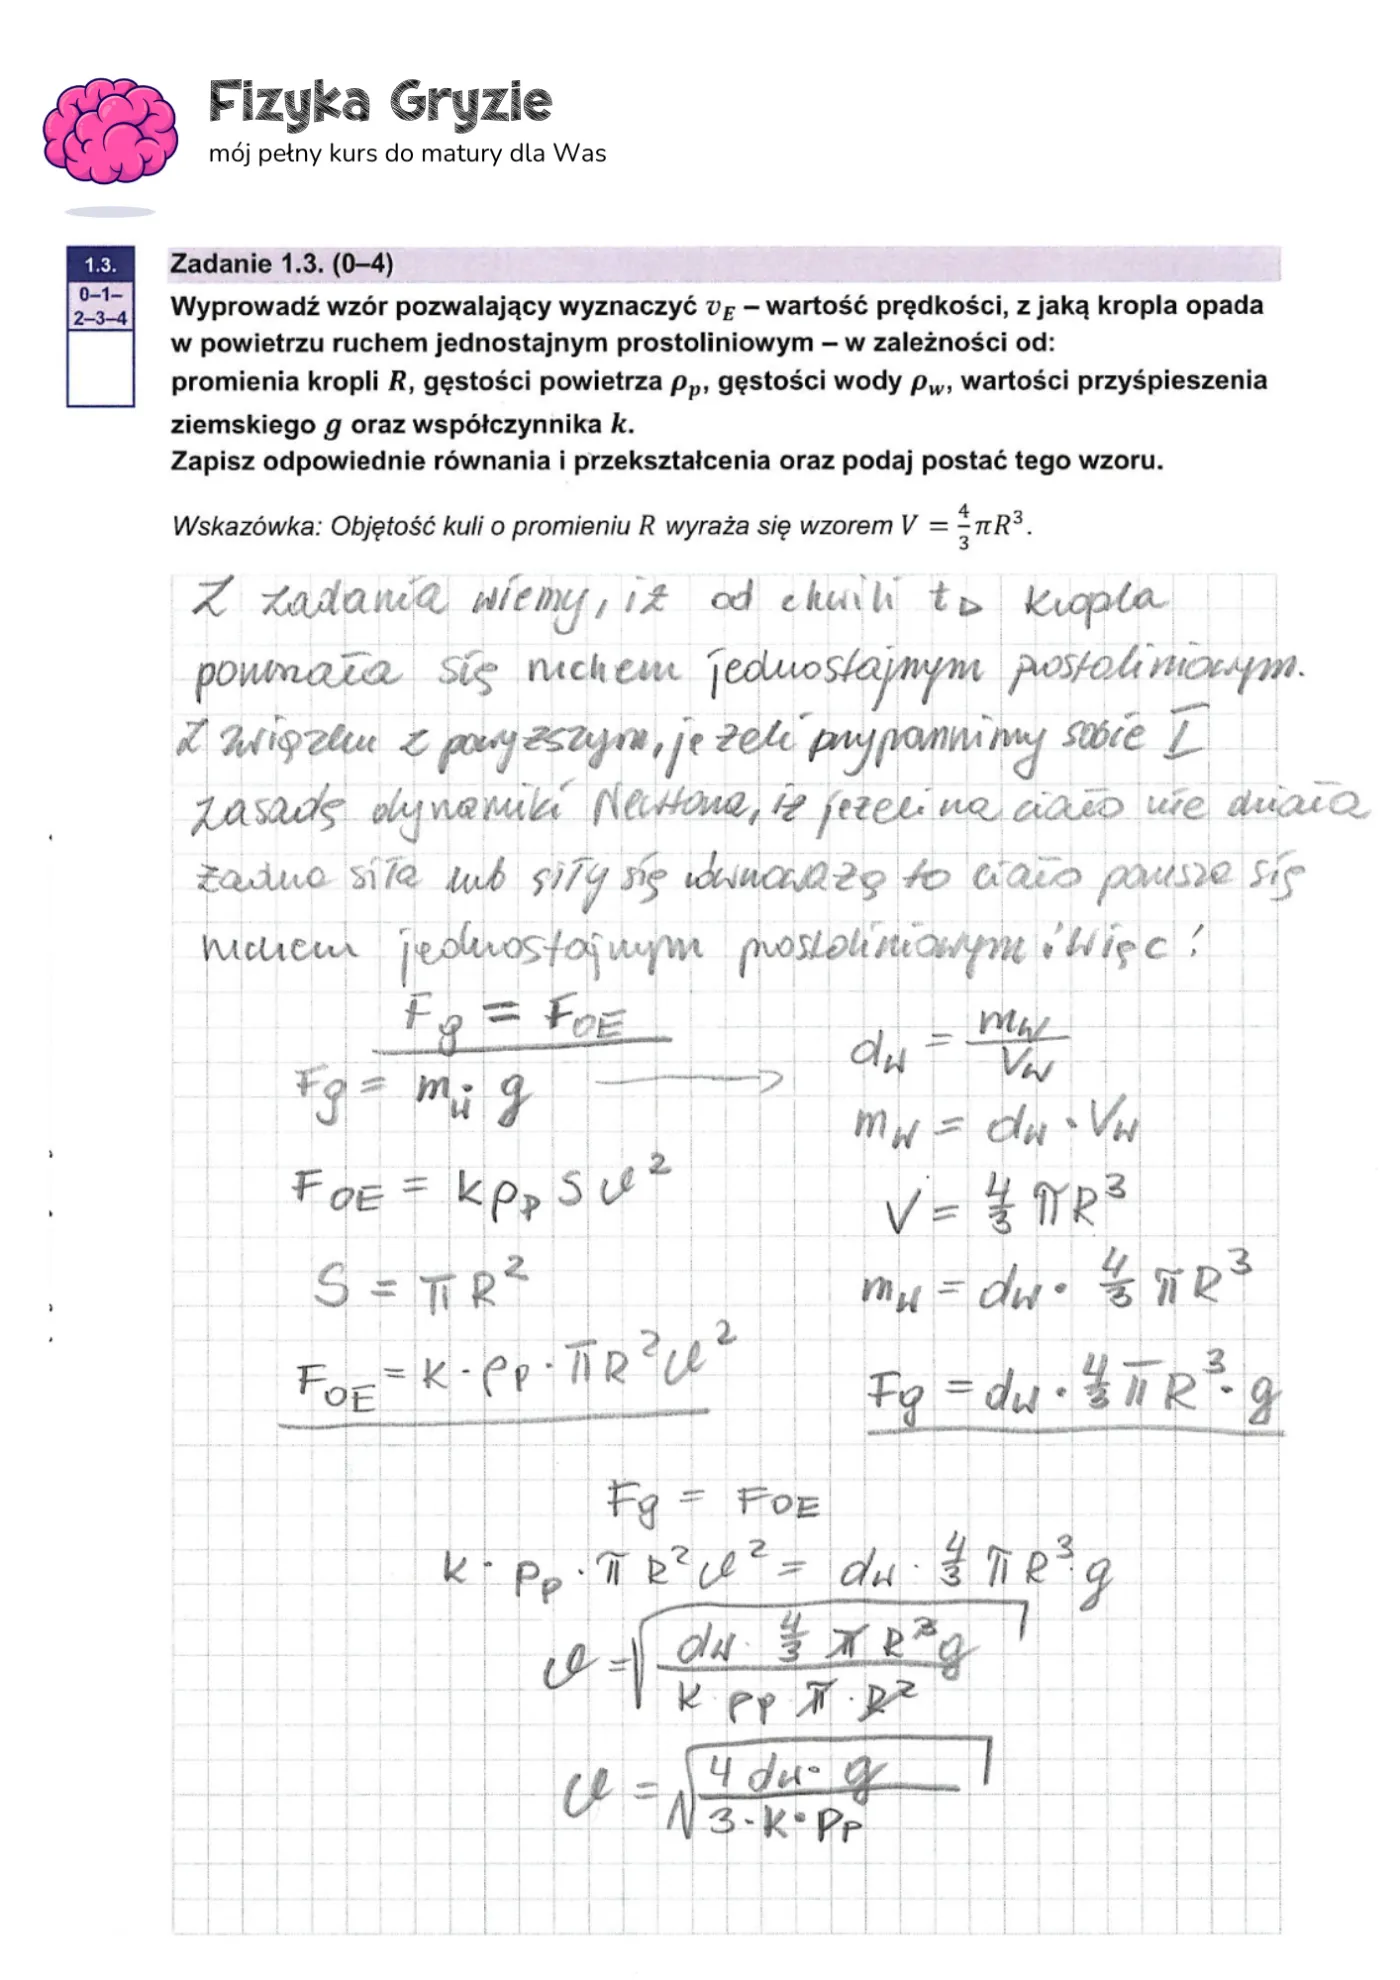 Fizyka Gryzie
mój pełny kurs do matury dla Was
1.3.
0–1–
2–3–4
Zadanie 1.3. (0–4)
Wyprowadź wzór pozwalający wyznaczyć v_E – wartość prędkości, z jaką kropla opada
w powietrzu ruchem jednostajnym prostoliniowym – w zależności od:
promienia kropli R, gęstości powietrza ρ_p, gęstości wody ρ_w, wartości przyśpieszenia
ziemskiego g oraz współczynnika k.
Zapisz odpowiednie równania i przekształcenia oraz podaj postać tego wzoru.
Wskazówka: Objętość kuli o promieniu R wyraża się wzorem V = 4/3 πR³.
Z zadania wiemy, iż od chwili t_D kropla
poruszała się ruchem jednostajnym prostoliniowym.
Z związku z powyższym, jeżeli przypomnimy sobie I
zasadę dynamiki Newtona, iż jeżeli na ciało nie działa
żadna siła lub siły się równoważą to ciało porusza się
ruchem jednostajnym prostoliniowym. Więc:
F_g = F_OE
F_g = m_w g →
F_OE = k ρ_p S v²
S = π R²
F_OE = k · ρ_p · π R² v²
d_w = m_w / V_w
m_w = d_w · V_w
V = 4/3 π R³
m_w = d_w · 4/3 π R³
F_g = d_w · 4/3 π R³ · g
F_g = F_OE
k · ρ_p · π R² v² = d_w · 4/3 π R³ · g
v = √(d_w · 4/3 π R³ g / k ρ_p π · R²)
v = √(4 d_w · g / 3 · k · ρ_p)